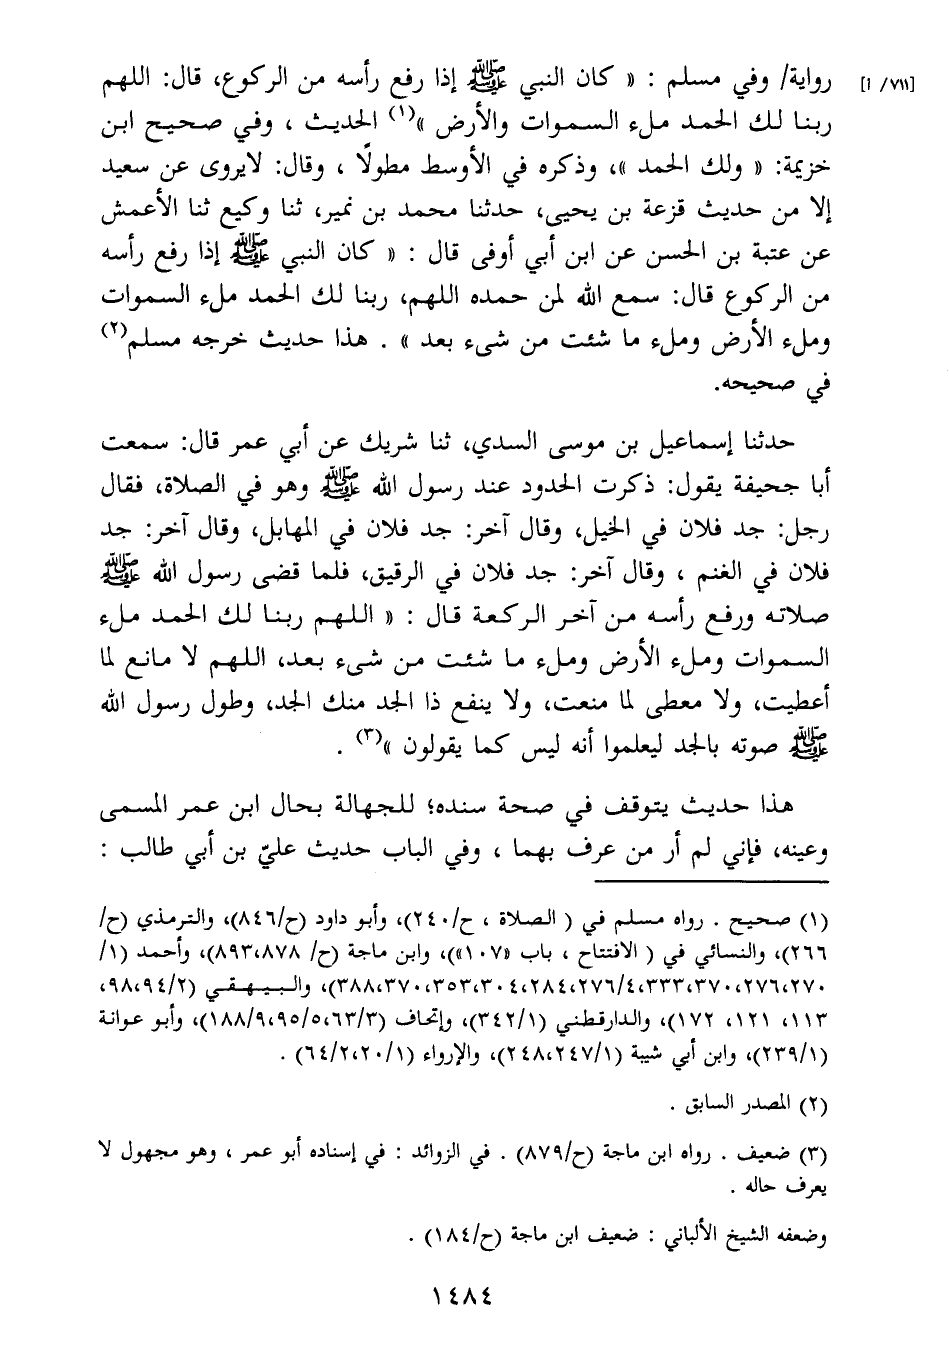 [٧١١/ أ] رواية/ وفي مسلم : « كان النبي ﷺ إذا رفع رأسه من الركوع، قال: اللهم
ربنا لك الحمد ملء السموات والأرض »(١) الحديث ، وفي صحيح ابن
خزيمة: « ولك الحمد »، وذكره في الأوسط مطولًا ، وقال: لايروى عن سعيد
إلا من حديث قزعة بن يحيى، حدثنا محمد بن نمير، ثنا وكيع ثنا الأعمش
عن عتبة بن الحسن عن ابن أبي أوفى قال : « كان النبي ﷺ إذا رفع رأسه
من الركوع قال: سمع الله لمن حمده اللهم، ربنا لك الحمد ملء السموات
وملء الأرض وملء ما شئت من شىء بعد » . هذا حديث خرجه مسلم(٢)
في صحيحه.
حدثنا إسماعيل بن موسى السدي، ثنا شريك عن أبي عمر قال: سمعت
أبا جحيفة يقول: ذكرت الحدود عند رسول الله ﷺ وهو في الصلاة، فقال
رجل: جد فلان في الخيل، وقال آخر: جد فلان في المهابل، وقال آخر: جد
فلان في الغنم ، وقال آخر: جد فلان في الرقيق، فلما قضى رسول الله ﷺ
صلاته ورفع رأسه من آخر الركعة قال : « اللهم ربنا لك الحمد ملء
السموات وملء الأرض وملء ما شئت من شىء بعد، اللهم لا مانع لما
أعطيت، ولا معطى لما منعت، ولا ينفع ذا الجد منك الجد، وطول رسول الله
ﷺ صوته بالجد ليعلموا أنه ليس كما يقولون »(٣) .
هذا حديث يتوقف في صحة سنده؛ للجهالة بحال ابن عمر المسمى
وعينه، فإني لم أر من عرف بهما ، وفي الباب حديث عليّ بن أبي طالب :
(١) صحيح . رواه مسلم في ( الصلاة ، ح/٢٤٠)، وأبو داود (ح/٨٤٦)، والترمذي (ح/
٢٦٦)، والنسائي في ( الافتتاح ، باب «١٠٧»)، وابن ماجة (ح/ ٨٩٣،٨٧٨)، وأحمد (١/
٣٨٨،٣٧٠،٣٥٣،٣٠٤،٢٨٤،٢٧٦/٤،٣٣٣،٣٧٠،٢٧٦،٢٧٠)، والبيهقي (٩٨،٩٤/٢،
١١٣، ١٢١، ١٧٢)، والدارقطني (٣٤٢/١)، وإتحاف (١٨٨/٩،٩٥/٥،٦٣/٣)، وأبو عوانة
(٢٣٩/١)، وابن أبي شيبة (٢٤٨،٢٤٧/١)، والإرواء (٦٤/٢،٢٠/١) .
(٢) المصدر السابق .
(٣) ضعيف . رواه ابن ماجة (ح/٨٧٩) . في الزوائد : في إسناده أبو عمر ، وهو مجهول لا
يعرف حاله .
وضعفه الشيخ الألباني : ضعيف ابن ماجة (ح/١٨٤) .
١٤٨٤